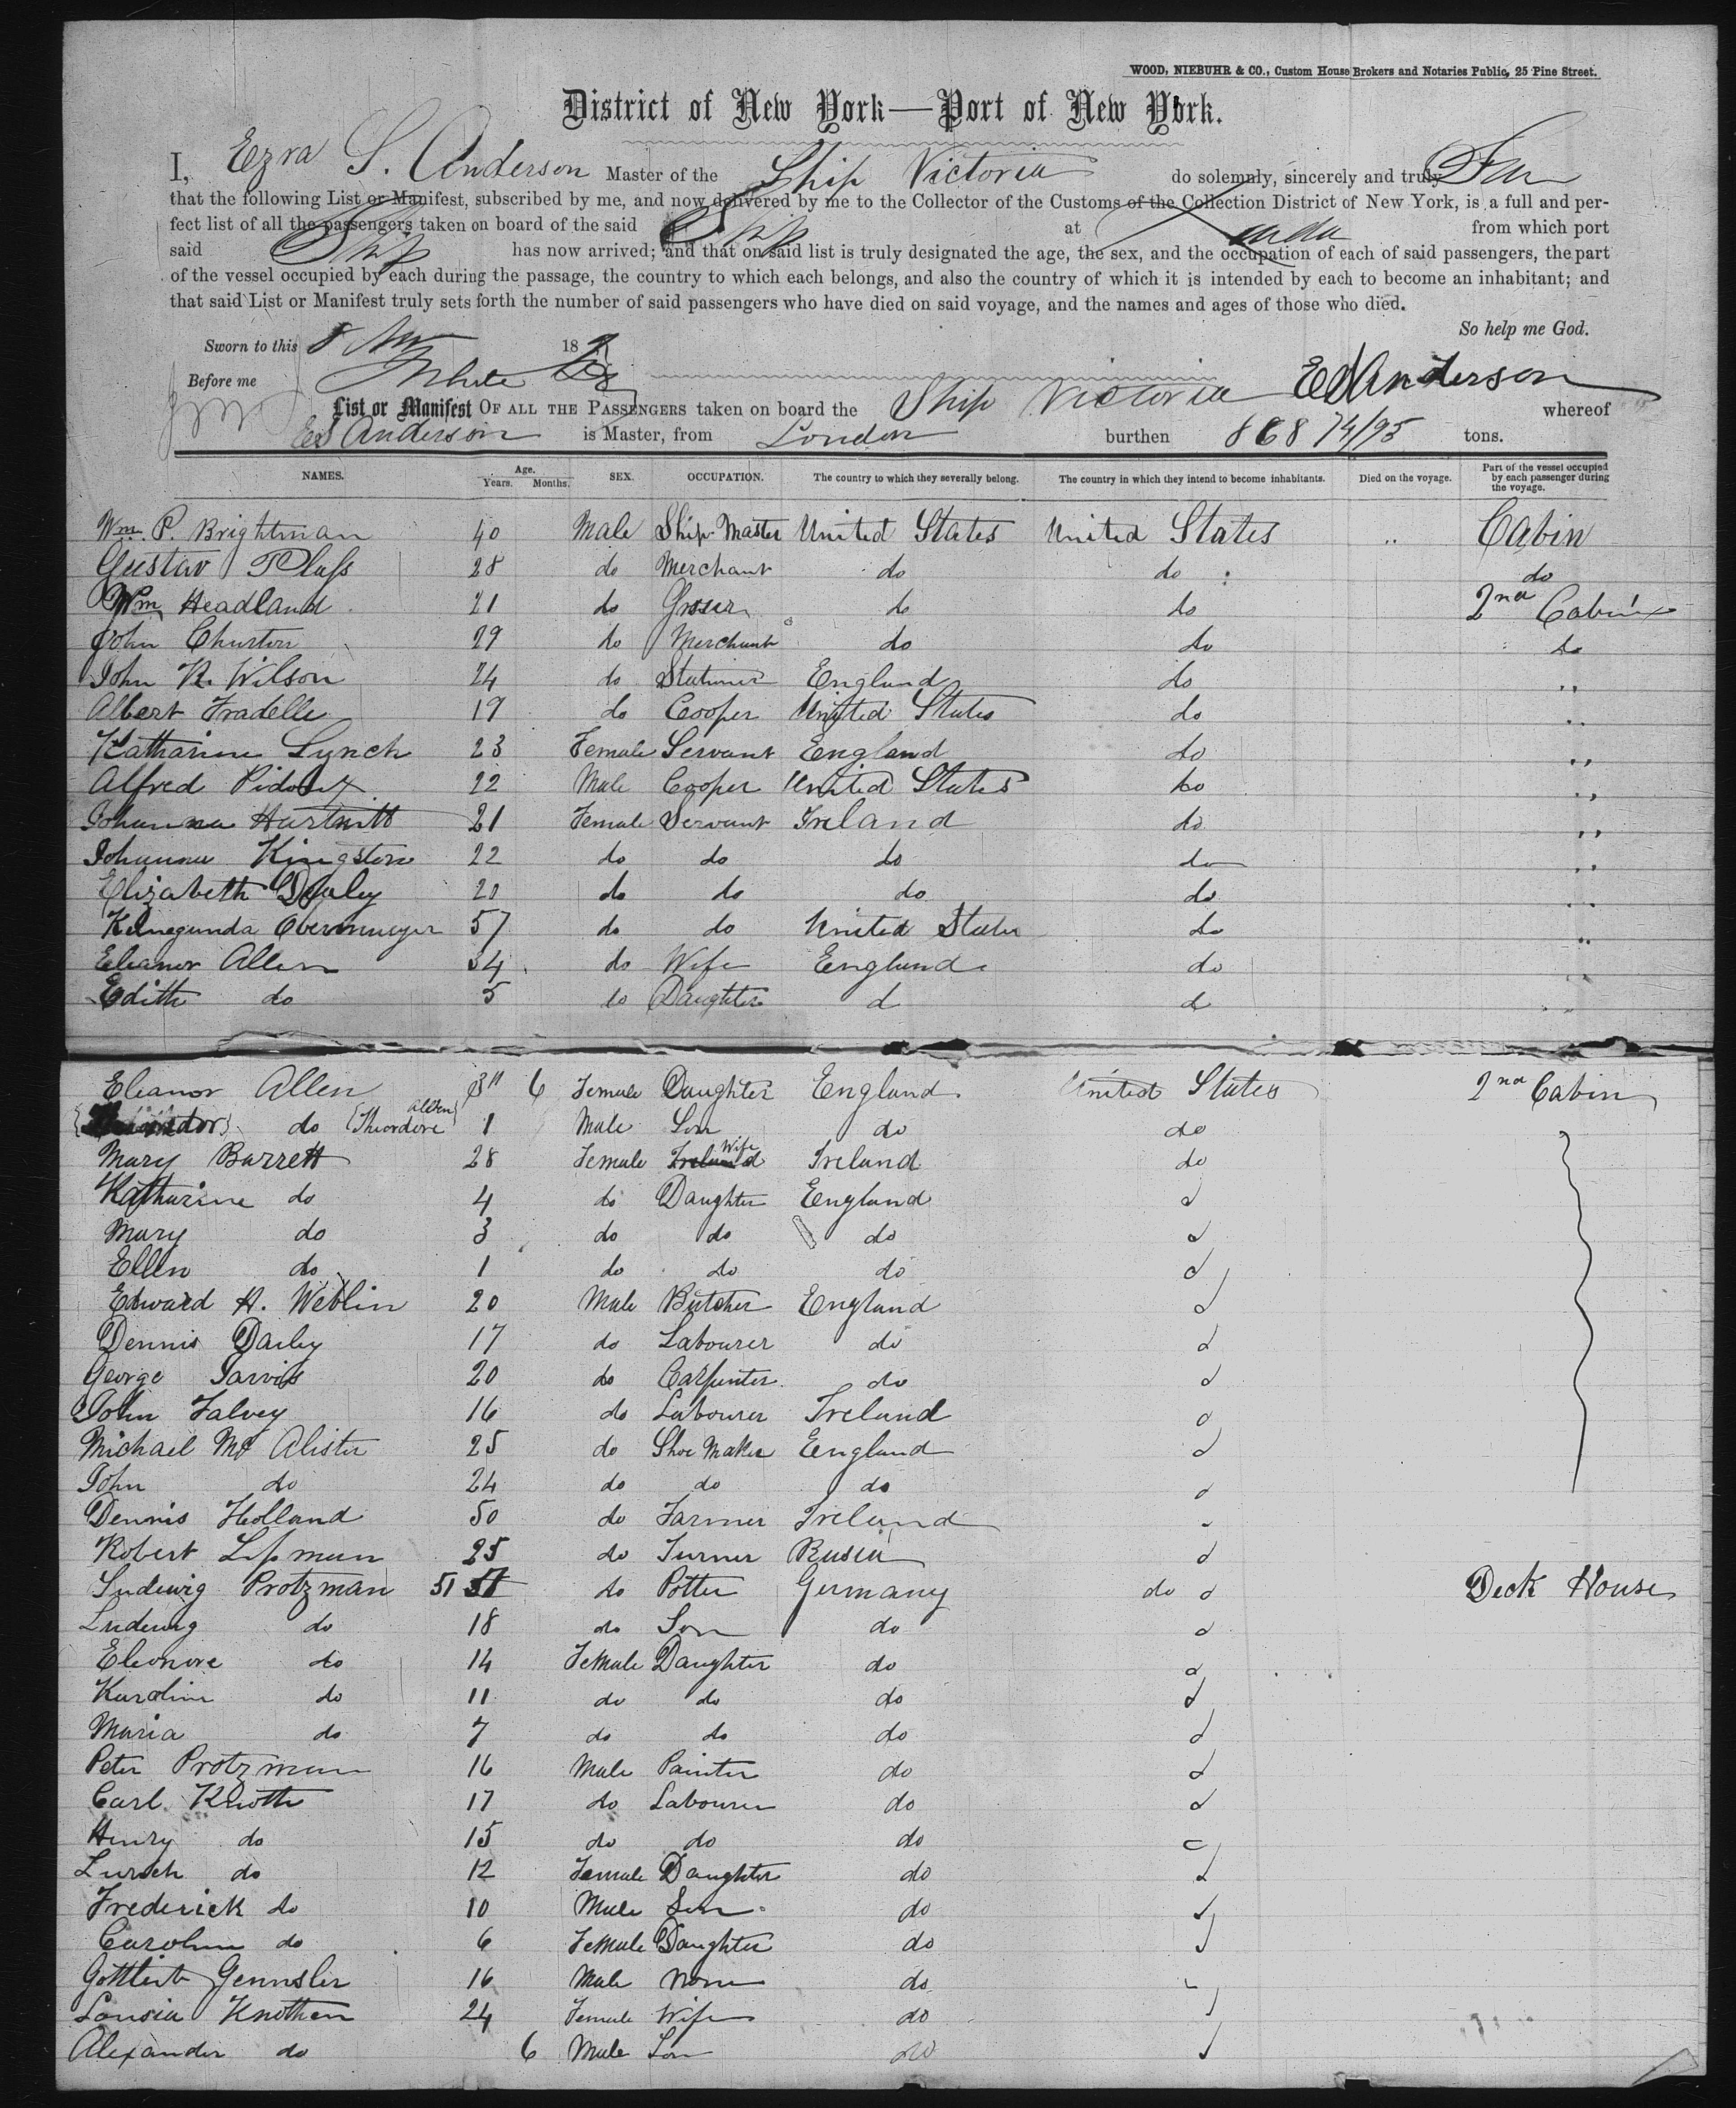 WOOD, NIEBUHR & CO., Custom House Brokers and Notaries Public, 25 Pine Street.
District of New York—Port of New York.
I, Ezra S. Anderson Master of the Ship Victoria do solemnly, sincerely and truly
that the following List or Manifest, subscribed by me, and now delivered by me to the Collector of the Customs of the Collection District of New York, is a full and per-
fect list of all the passengers taken on board of the said Ship at London from which port
said Ship has now arrived; and that on said list is truly designated the age, the sex, and the occupation of each of said passengers, the part
of the vessel occupied by each during the passage, the country to which each belongs, and also the country of which it is intended by each to become an inhabitant; and
that said List or Manifest truly sets forth the number of said passengers who have died on said voyage, and the names and ages of those who died.
So help me God.
Sworn to this 8 187
Before me White ES Anderson
List or Manifest OF ALL THE PASSENGERS taken on board the Ship Victoria whereof
ES Anderson is Master, from London burthen 868 74/95 tons.
NAMES. Age. Years. Months. SEX. OCCUPATION. The country to which they severally belong. The country in which they intend to become inhabitants. Died on the voyage. Part of the vessel occupied by each passenger during the voyage.
Wm. P. Brightman 40 Male Ship Master United States United States " Cabin
Gustav Plass 28 do Merchant do do do
Wm Headland 21 do Grocer do do 2nd Cabin
John Churton 29 do Merchant do do do
John R. Wilson 24 do Stationer England do "
Albert Fradelle 19 do Cooper United States do "
Katharine Lynch 23 Female Servant England do "
Alfred Pidoux 22 Male Cooper United States do "
Johanna Hartnitt 21 Female Servant Ireland do "
Johanna Kingston 22 do do do do "
Elizabeth Dealey 20 do do do do "
Kunegunda Obermmeyer 57 do do United States do "
Eleanor Allen 34 do Wife England do "
Edith do 5 do Daughter d d "
Eleanor Allen 3 11 6 Female Daughter England United States 2nd Cabin
do {Theordore Allen} 1 Male Son do do
Mary Barrett 28 Female Ireland Wife Ireland do
Katharine do 4 do Daughter England d
Mary do 3 do do do d
Ellen do 1 do do do d
Edward H. Weblin 20 Male Butcher England d
Dennis Dailey 17 do Labourer do d
George Jarvis 20 do Carpenter do d
John Falvey 16 do Labourer Ireland d
Michael Mc Alister 25 do Shoe Maker England d
John do 24 do do do d
Dennis Holland 50 do Farmer Ireland
Robert Lipman 25 do Turner Rusia d
Ludewig Protzman 51 do Potter Germany do d Deck House
Ludewig do 18 do Son do d
Eleonore do 14 Female Daughter do d
Karoline do 11 do do do d
Maria do 7 do do do d
Peter Protzman 16 Male Painter do d
Carl Knoth 17 do Labourer do d
Henry do 15 do do do
do 12 Female Daughter do d
Frederick do 10 Male Son do d
Caroline do 6 Female Daughter do d
Gottlieb Gennsler 16 Male None do
Lousia Knothen 24 Female Wife do
Alexander do 6 Male Son do